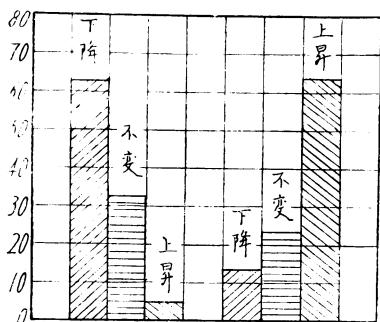 80
70
60
50
40
30
20
10
0
下降
不变
上昇
下降
不变
上昇